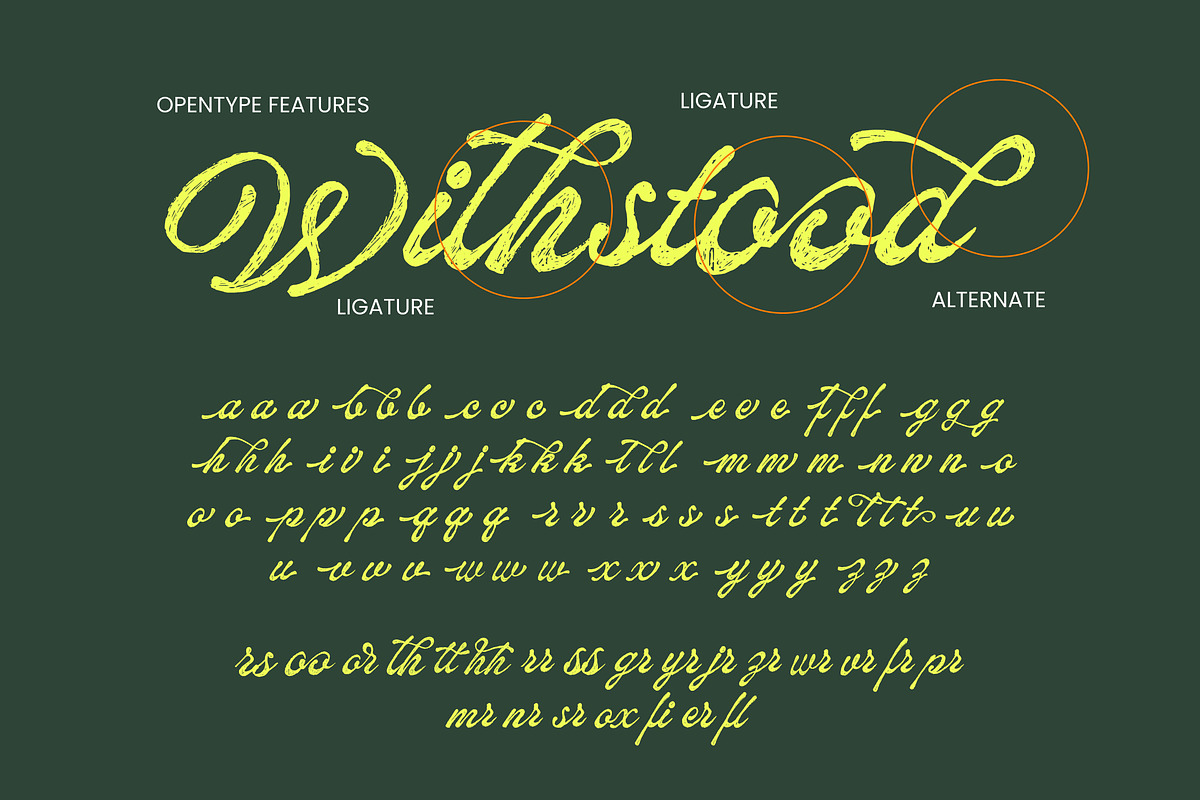 OPENTYPE FEATURES
LIGATURE
Withstood
LIGATURE
ALTERNATE
a a a b b b c c c d d d e e e f f f g g g
h h h i i i j j j k k k l l l m m m n n n o
o o p p p q q q r r r s s s t t t t t t u u
u v v v w w w x x x y y y z z z
rs oo or th tt hh rr ss gr yr jr zr wr vr fr pr
mr nr sr ox fi er fl